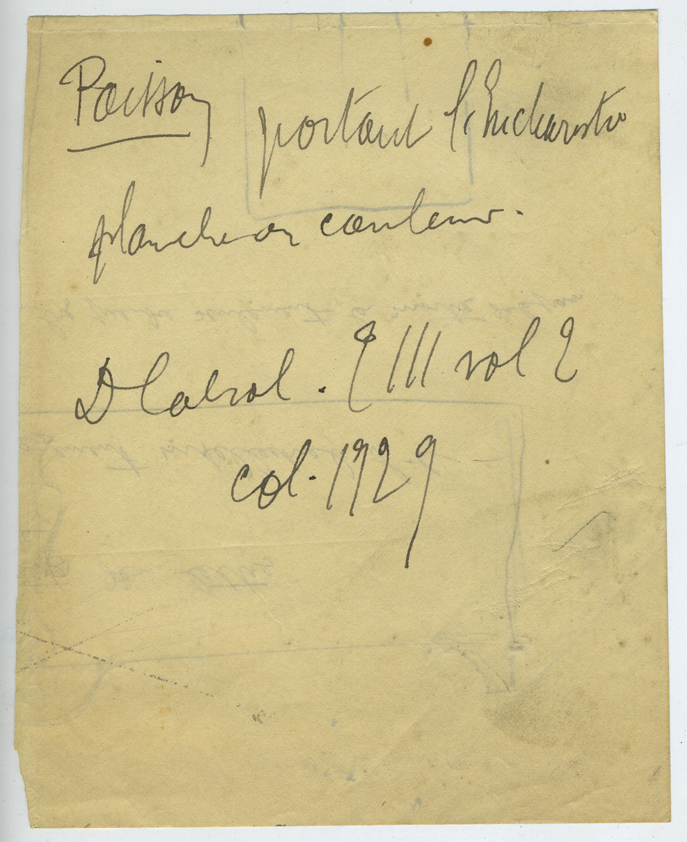 Poisson portant l'Eucharistie
planche en couleur.
D Cabrol. T III vol 2
col. 1929